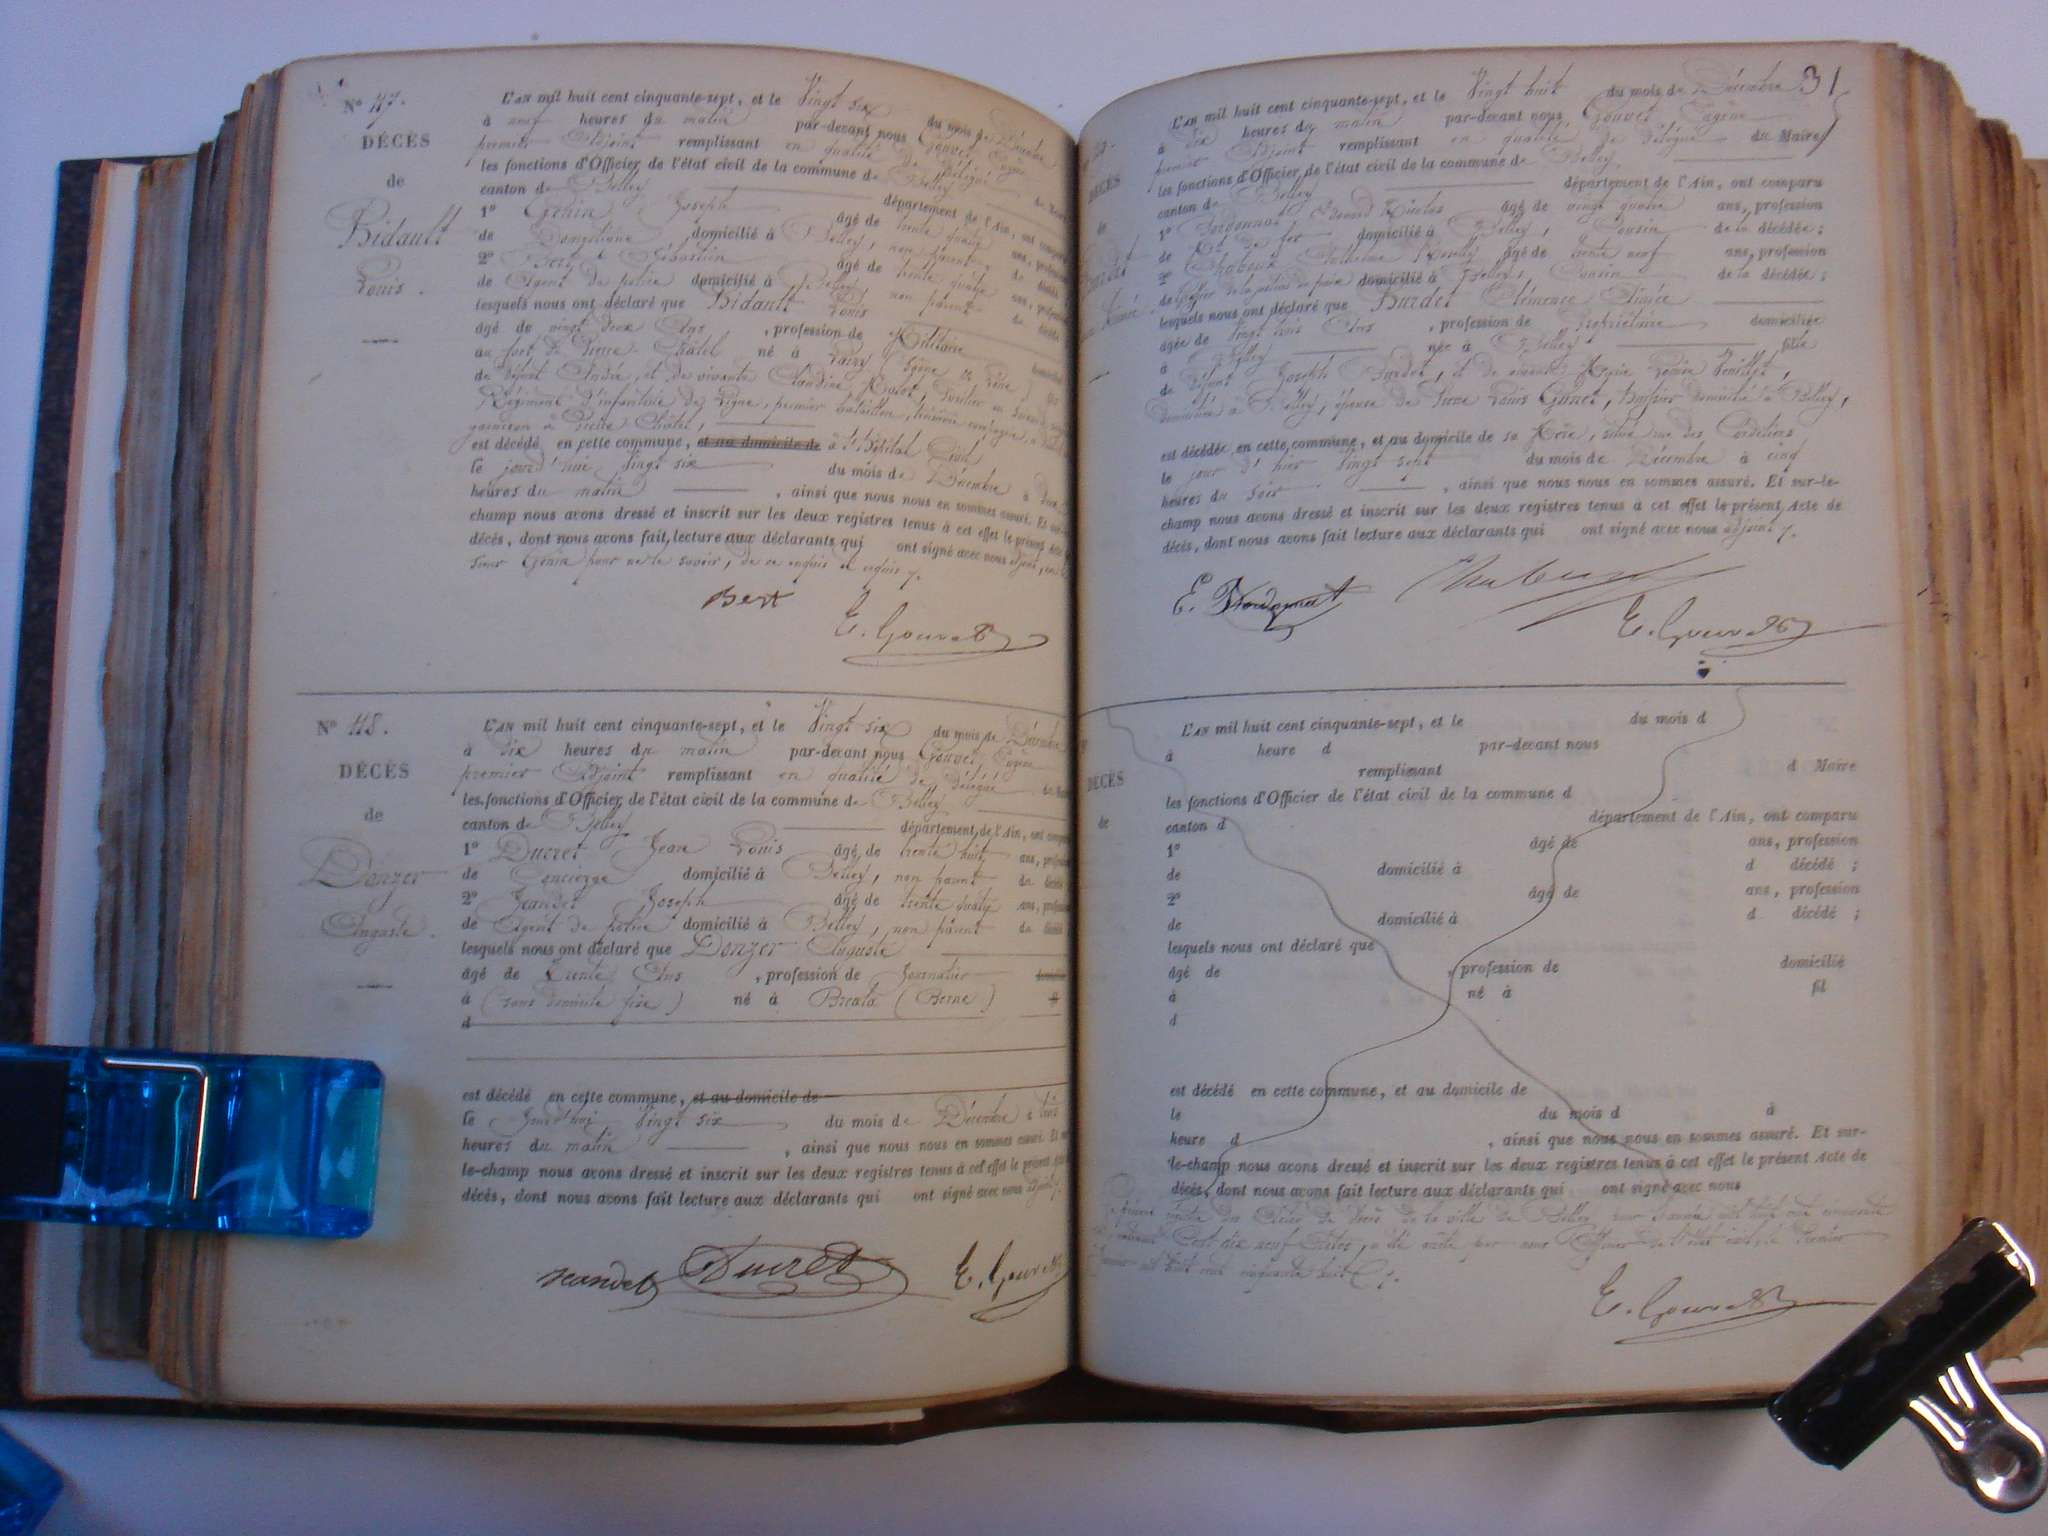 DÉCÈS
de
Bidault
Louis.
L'AN mil huit cent cinquante-sept, et le Vingt six du mois de Décembre
à neuf heures du matin par-devant nous Gouvet Eugène
premier Adjoint remplissant en qualité de délégué
les fonctions d'Officier de l'état civil de la commune de Belley
canton de Belley département de l'Ain, ont comparu
1º Génin Joseph âgé de trente quatre ans, profession
de domicilié à Belley, non parent de décédé
2º Bert Sébastien âgé de trente quatre ans, profession
de Agent de police domicilié à Belley, non parent de décédé
lesquels nous ont déclaré que Bidault Louis
âgé de vingt deux Ans, profession de Militaire
au fort de Pierre-Châtel né à
de défunt André, et de vivante Claudine
Régiment d'infanterie de Ligne, premier bataillon,
garnison à Pierre Châtel,
est décédé en cette commune, et au domicile de à l'hôpital Civil
le jourd'hui Vingt six du mois de Décembre à
heures du matin, ainsi que nous nous en sommes assuré. Et sur-le-
champ nous avons dressé et inscrit sur les deux registres tenus à cet effet le présent Acte de
décès, dont nous avons fait lecture aux déclarants qui ont signé avec nous adjoint,
sieur Génin pour ne le savoir, de ce enquis et requis
Bert
E. Gouvet
Nº 48.
DÉCÈS
de
Donzer
Auguste.
L'AN mil huit cent cinquante-sept, et le Vingt six du mois de Décembre
à dix heures du matin par-devant nous Gouvet Eugène
premier Adjoint remplissant en qualité de délégué
les fonctions d'Officier de l'état civil de la commune de Belley
canton de Belley département de l'Ain, ont comparu
1º Ducret Jean Louis âgé de trente huit ans, profession
de Concierge domicilié à Belley, non parent de décédé
2º Jeandet Joseph âgé de trente quatre ans, profession
de Agent de police domicilié à Belley, non parent de décédé
lesquels nous ont déclaré que Donzer Auguste
âgé de trente Ans, profession de Journalier
à (sans domicile fixe) né à (Berne)
d
est décédé en cette commune, et au domicile de
le jourd'hui Vingt six du mois de Décembre à trois
heures du matin, ainsi que nous nous en sommes assuré. Et sur-
le-champ nous avons dressé et inscrit sur les deux registres tenus à cet effet le présent Acte de
décès, dont nous avons fait lecture aux déclarants qui ont signé avec nous adjoint
Jeandet Ducret E. Gouvet
31
DÉCÈS
de
L'AN mil huit cent cinquante-sept, et le Vingt huit du mois de Décembre
à dix heures du matin par-devant nous Gouvet Eugène
premier Adjoint remplissant en qualité de délégué du Maire
les fonctions d'Officier de l'état civil de la commune de Belley
canton de Belley département de l'Ain, ont comparu
1º âgé de vingt quatre ans, profession
de Md de fer domicilié à Belley, Cousin de la décédée;
2º Anthelme âgé de trente neuf ans, profession
de Greffier de la justice de paix domicilié à Belley, Cousin de la décédée;
lesquels nous ont déclaré que Burdet Clémence Aimée
âgée de Vingt trois Ans, profession de Propriétaire domiciliée
à Belley née à Belley fille
de défunt Joseph Burdet, et de vivante Marie
domiciliée à Belley, épouse de Pierre Louis, Huissier domicilié à Belley,
est décédée en cette commune, et au domicile de sa Mère, situé rue des Cordeliers
le jour d'hier Vingt sept du mois de Décembre à cinq
heures du soir, ainsi que nous nous en sommes assuré. Et sur-le-
champ nous avons dressé et inscrit sur les deux registres tenus à cet effet le présent Acte de
décès, dont nous avons fait lecture aux déclarants qui ont signé avec nous adjoint
E. Gouvet
DÉCÈS
de
L'AN mil huit cent cinquante-sept, et le du mois d
à heure d par-devant nous
remplissant d Maire
les fonctions d'Officier de l'état civil de la commune d
canton d département de l'Ain, ont comparu
1º âgé de ans, profession
de domicilié à d décédé ;
2º âgé de ans, profession
de domicilié à d décédé ;
lesquels nous ont déclaré que
âgé de , profession de domicilié
à né à fil
d
est décédé en cette commune, et au domicile de
le du mois d à
heure d , ainsi que nous nous en sommes assuré. Et sur-
le-champ nous avons dressé et inscrit sur les deux registres tenus à cet effet le présent Acte de
décès, dont nous avons fait lecture aux déclarants qui ont signé avec nous
Le présent registre des Actes de Décès de la ville de Belley, pour l'année mil huit cent cinquante
Cent dix neuf Actes, a été arrêté par nous Officier de l'état civil, le Premier
Janvier mil huit cent cinquante huit
E. Gouvet